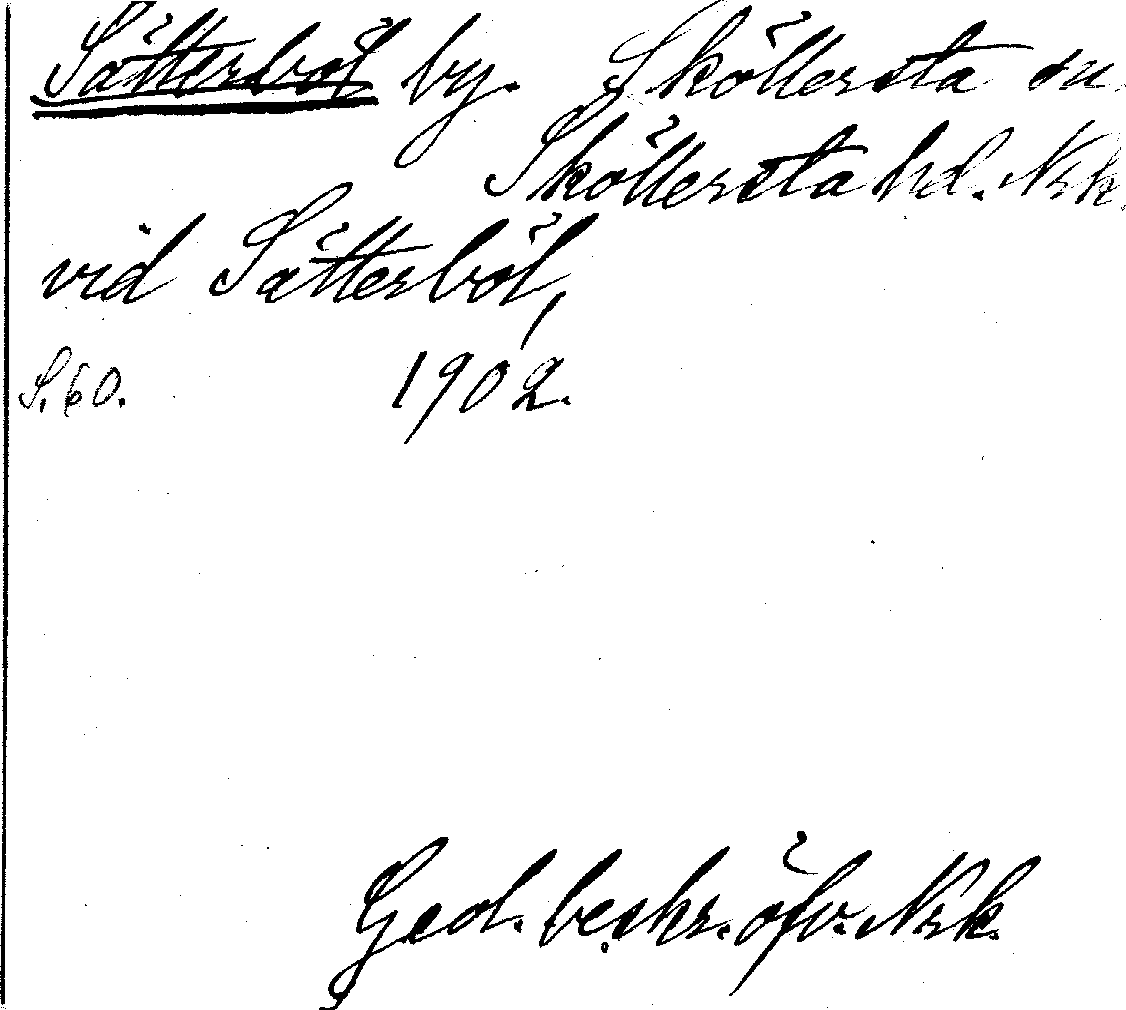 Sätterböl by. Sköllersta sn
Sköllersta hd. Nrk.
vid Sätterböl,
S. 60. 1902.
Geol. beskr. öfv. Nrk.